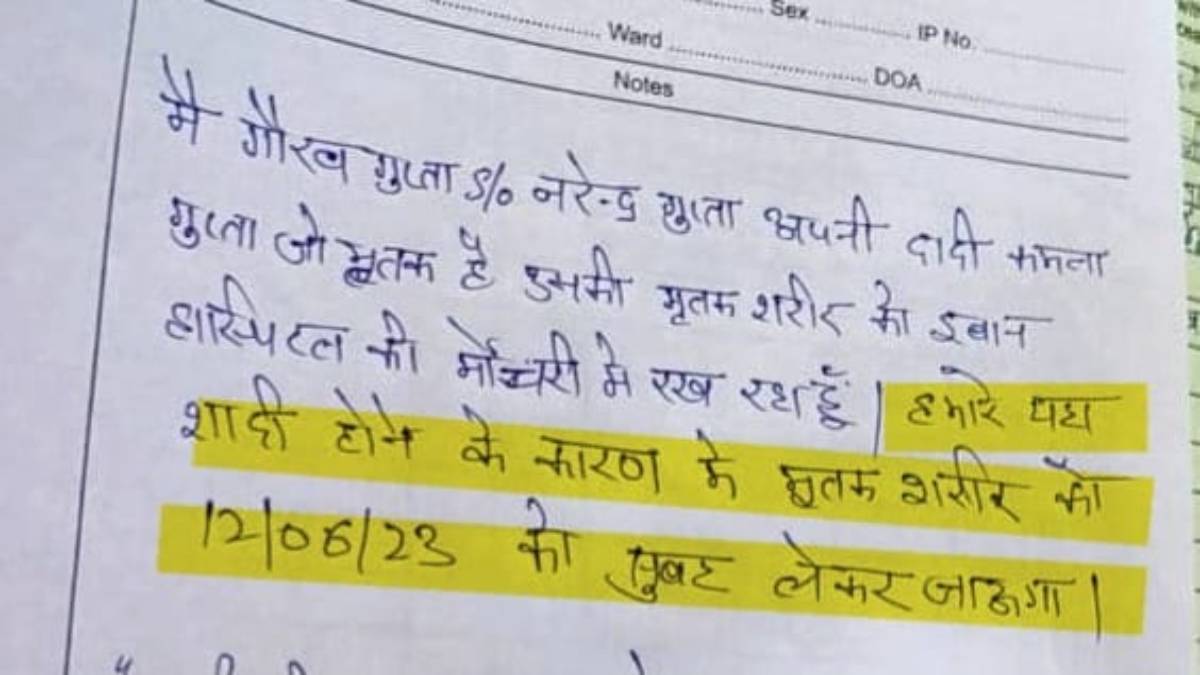 Sex ........ IP No. ........
Ward ........ DOA ........
Notes
मै गौरव गुप्ता S/o नरेन्द्र गुप्ता अपनी दादी कमला
गुप्ता जो मृतक है उसकी मृतक शरीर को
हास्पिटल की मौच्चरी मे रख रहा हूँ | हमारे यहा
शादी होने के कारण मे मृतक शरीर को
12/06/23 को सुबह लेकर जाऊगा |